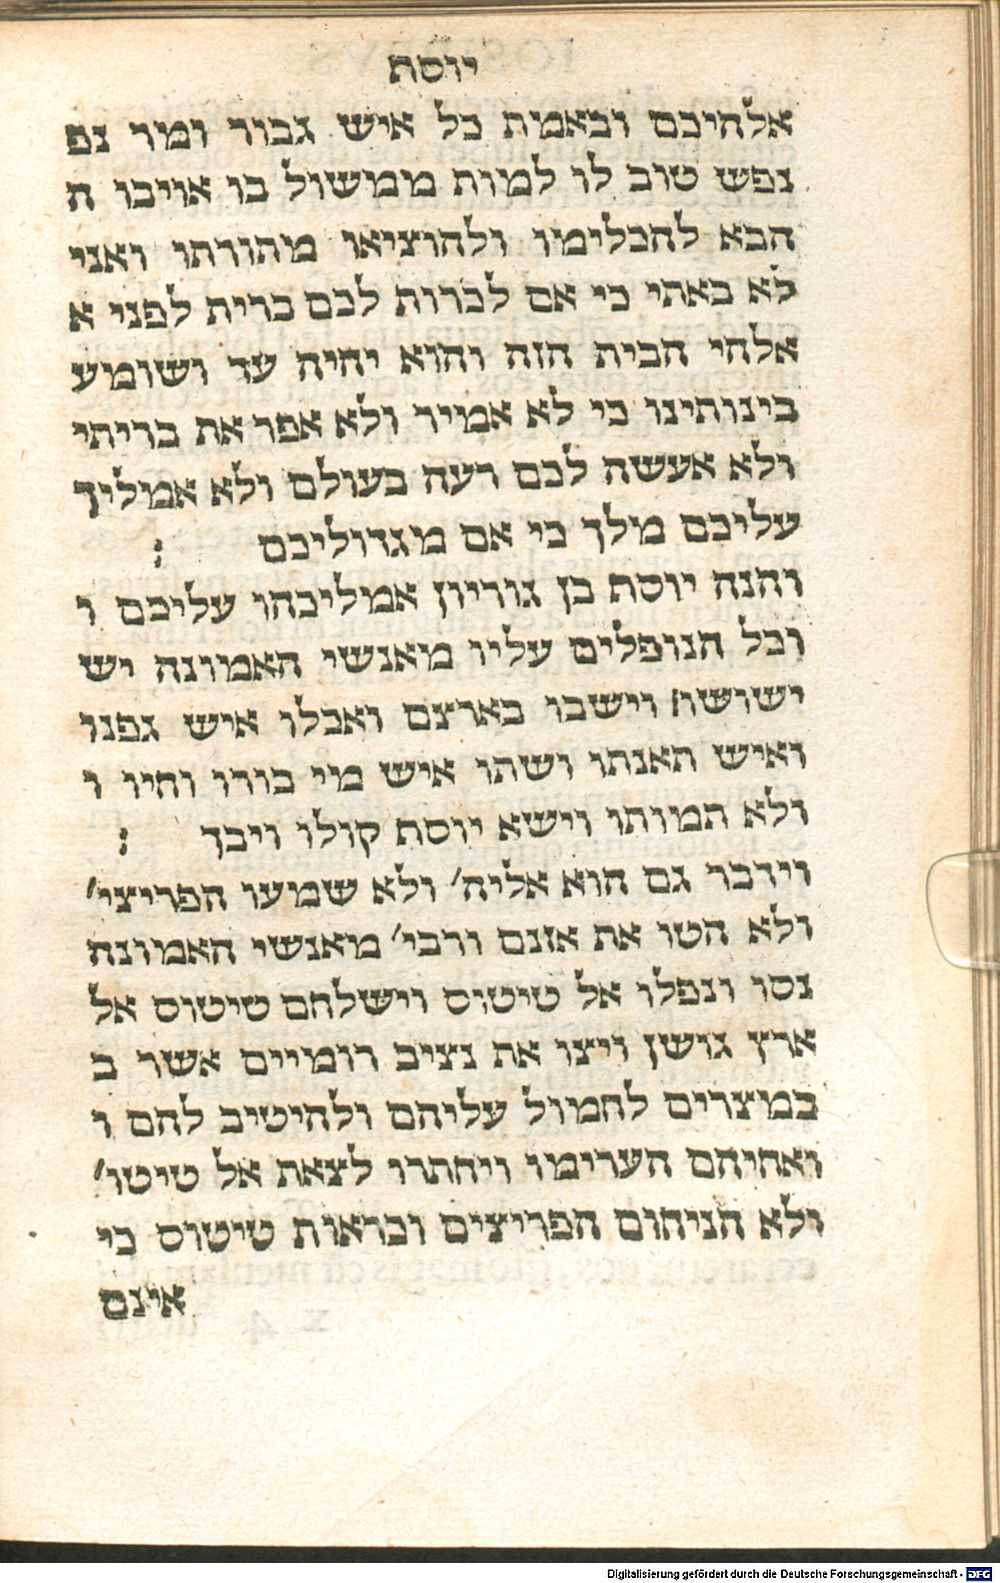 יוסף
אלהיכם ובאמת כל איש גבור ומר נפ
נפש טוב לו למות ממשול בו אויבו ה
הבא להכלימו ולהוציאו מתורתו ואני
לא באתי כי אם לכרות לכם ברית לפני א
אלהי הבית הזה והוא יהיה עד ושומע
בינותינו כי לא אמיר ולא אפר את בריתי
ולא אעשה לכם רעה בעולם ולא אמליך
עליכם מלך כי אם מגדוליכם :
והנה יוסף בן גוריון אמליכהו עליכם ו
וכל הנופלים עליו מאנשי האמונה יש
ישושו וישבו בארצם ואכלו איש גפנו
ואיש תאנתו ושתו איש מי בורו וחיו ו
ולא תמותו וישא יוסף קולו ויבך :
וידבר גם הוא אליה׳ ולא שמעו הפריצי׳
ולא הטו את אזנם ורבי׳ מאנשי האמונה
נסו ונפלו אל טיטוס וישלחם טיטוס אל
ארץ גושן ויצו את נציב רומיים אשר ב
במצרים לחמול עליהם ולהיטיב להם ו
ואחיהם הערימו ויחתרו לצאת אל טיטו׳
ולא הניחום הפריצים ובראות טיטוס כי
אינם
Digitalisierung gefördert durch die Deutsche Forschungsgemeinschaft - DFG